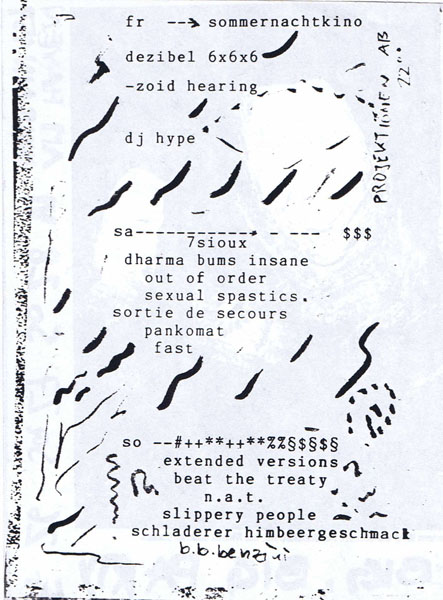 fr ---> sommernachtkino
dezibel 6x6x6
-zoid hearing
dj hype
PROJEKTIONEN AB 22°°
sa-------------- - --- $$$
7sioux
dharma bums insane
out of order
sexual spastics.
sortie de secours
pankomat
fast
so --#++**++**%%§$§$§
extended versions
beat the treaty
n.a.t.
slippery people
schladerer himbeergeschmack